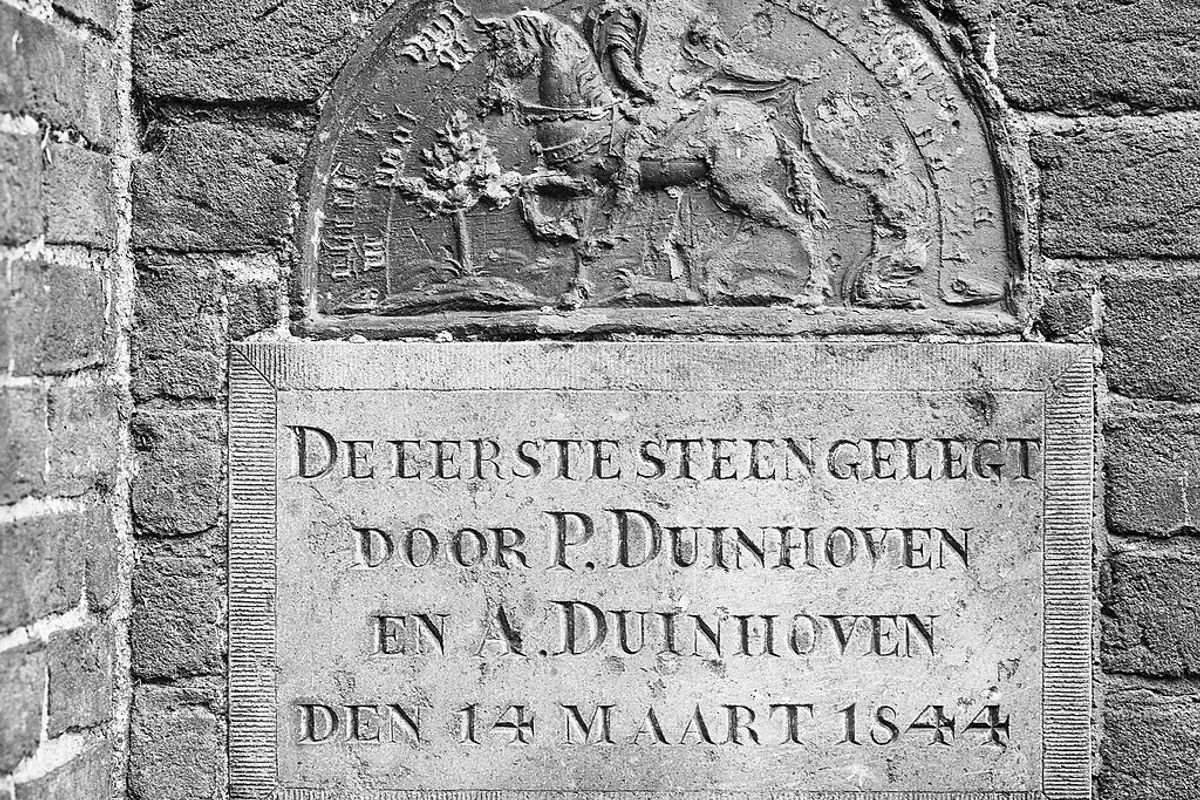 DE EERSTE STEEN GELEGT
DOOR P. DUINHOVEN
EN A. DUINHOVEN
DEN 14 MAART 1844